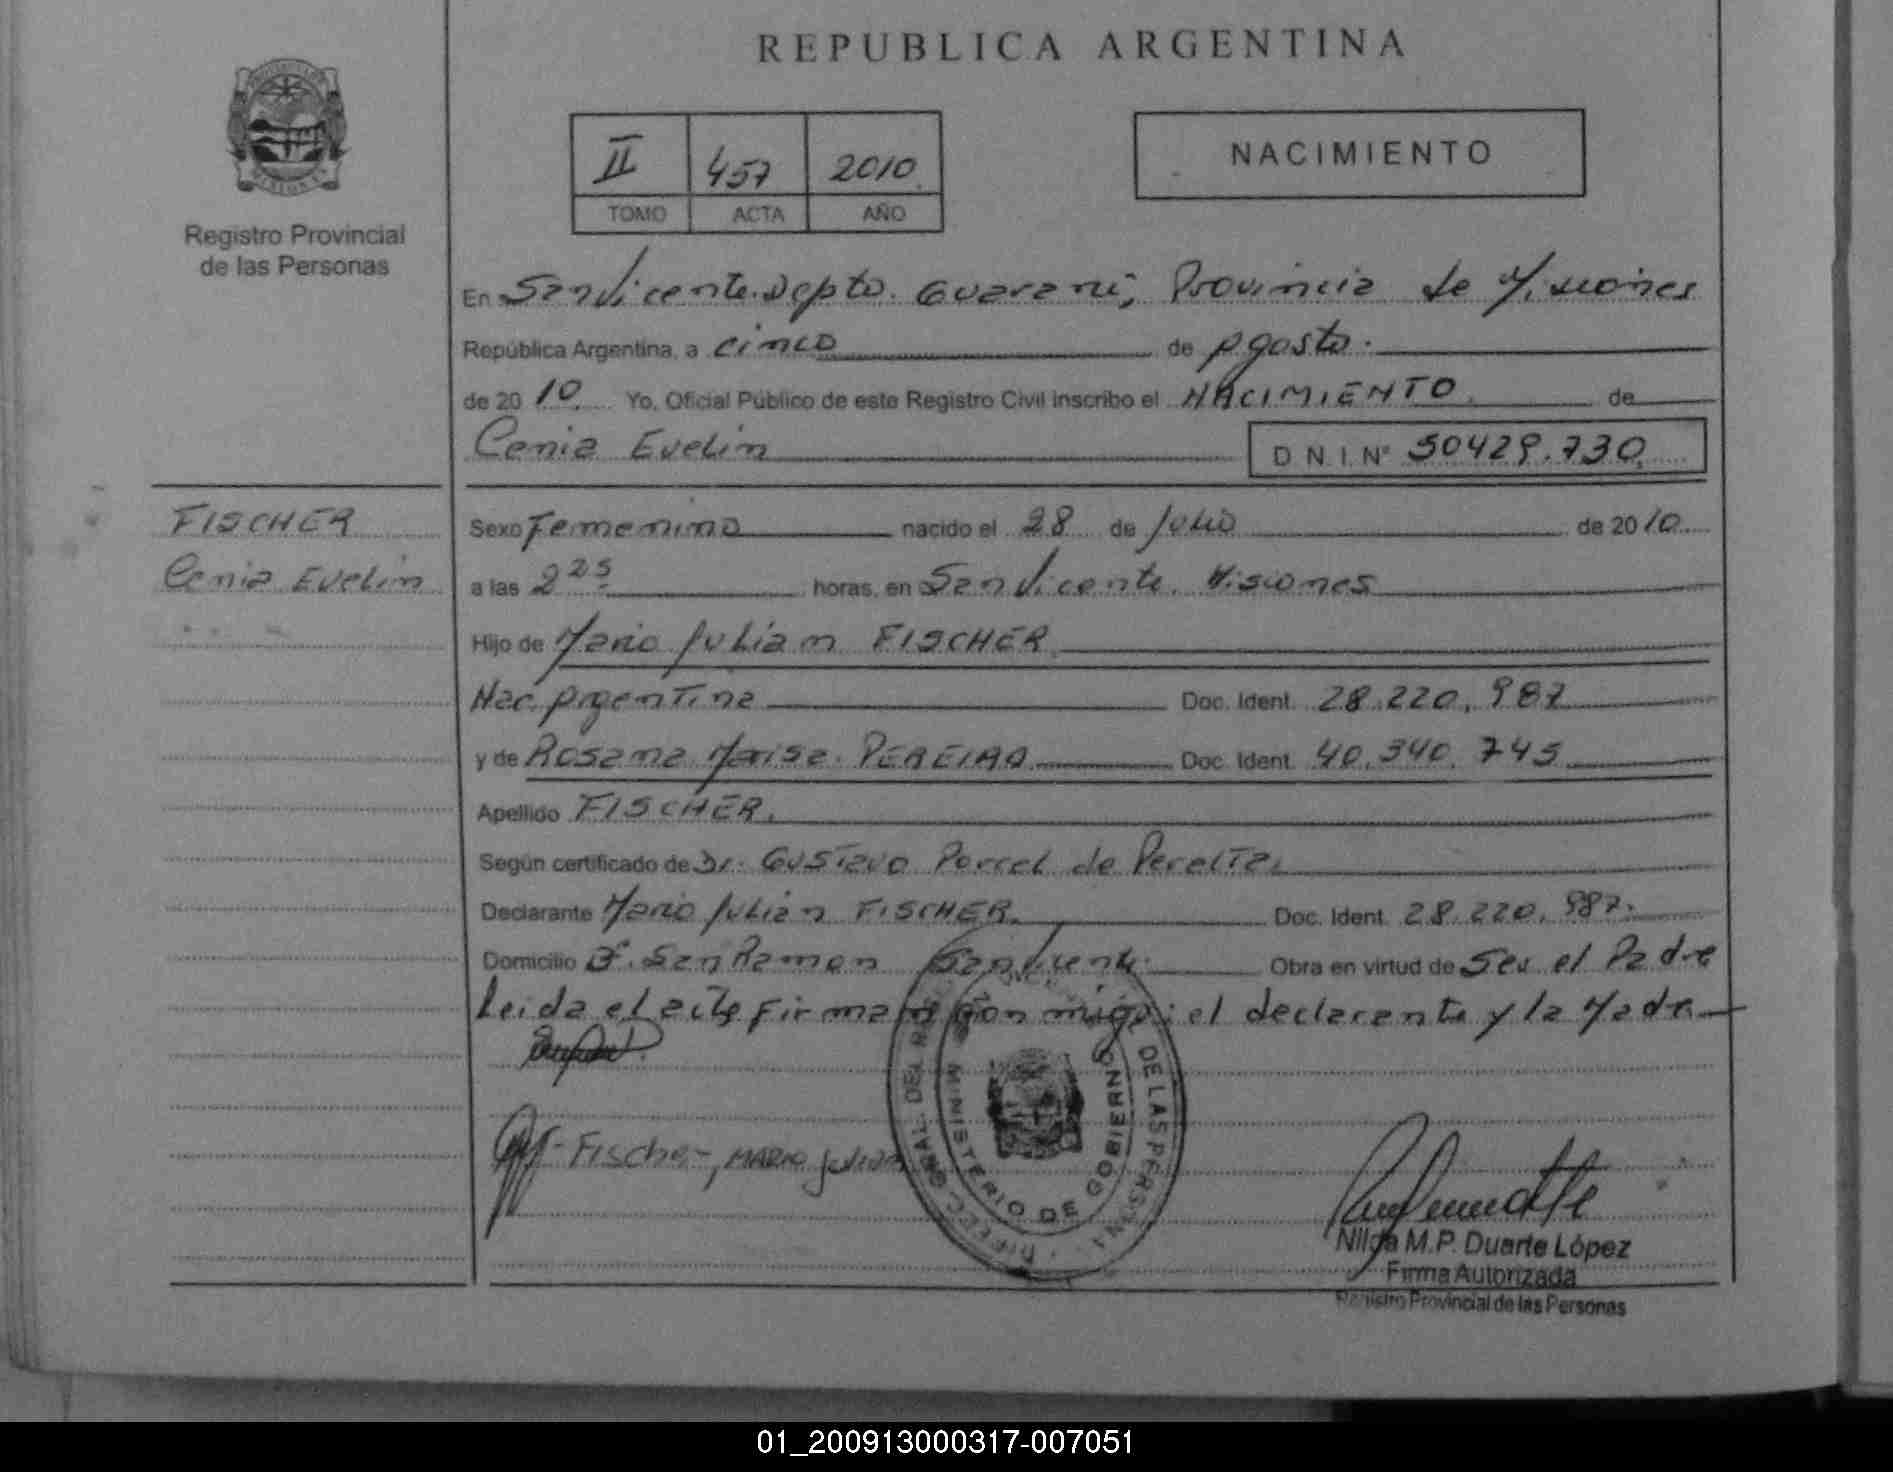 REPUBLICA ARGENTINA
PROVINCIA DE MISIONES
Registro Provincial
de las Personas
II 457 2010
TOMO ACTA AÑO
NACIMIENTO
En San Vicente. Depto. Guaraní, Provincia de Misiones
República Argentina, a cinco de Agosto.
de 2010. Yo, Oficial Público de este Registro Civil inscribo el NACIMIENTO. de
Cenia Evelin D N.I.Nº 50429.730.
FISCHER
Cenia Evelin
Sexo Femenino nacido el 28 de Julio de 2010
a las 2 25 horas, en San Vicente. Misiones
Hijo de Mario Julian FISCHER
Nac. Argentina Doc. Ident. 28.220.987
y de Rosana Marisa PEREIRA Doc. Ident. 40.340.745
Apellido FISCHER.
Según certificado de Dr. Gustavo Porcel de Peralta.
Declarante Mario Julian FISCHER. Doc. Ident. 28.220.987.
Domicilio Bº. San Ramon San Vicente. Obra en virtud de Ser el Padre
Leida el acta firman con migo: el declarante y la Madre
Fischer, MARIO Julian
DEL DE LAS PERSONAS
MINISTERIO DE GOBIERNO
Nilda M.P. Duarte López
Firma Autorizada
Registro Provincial de las Personas
01_200913000317-007051